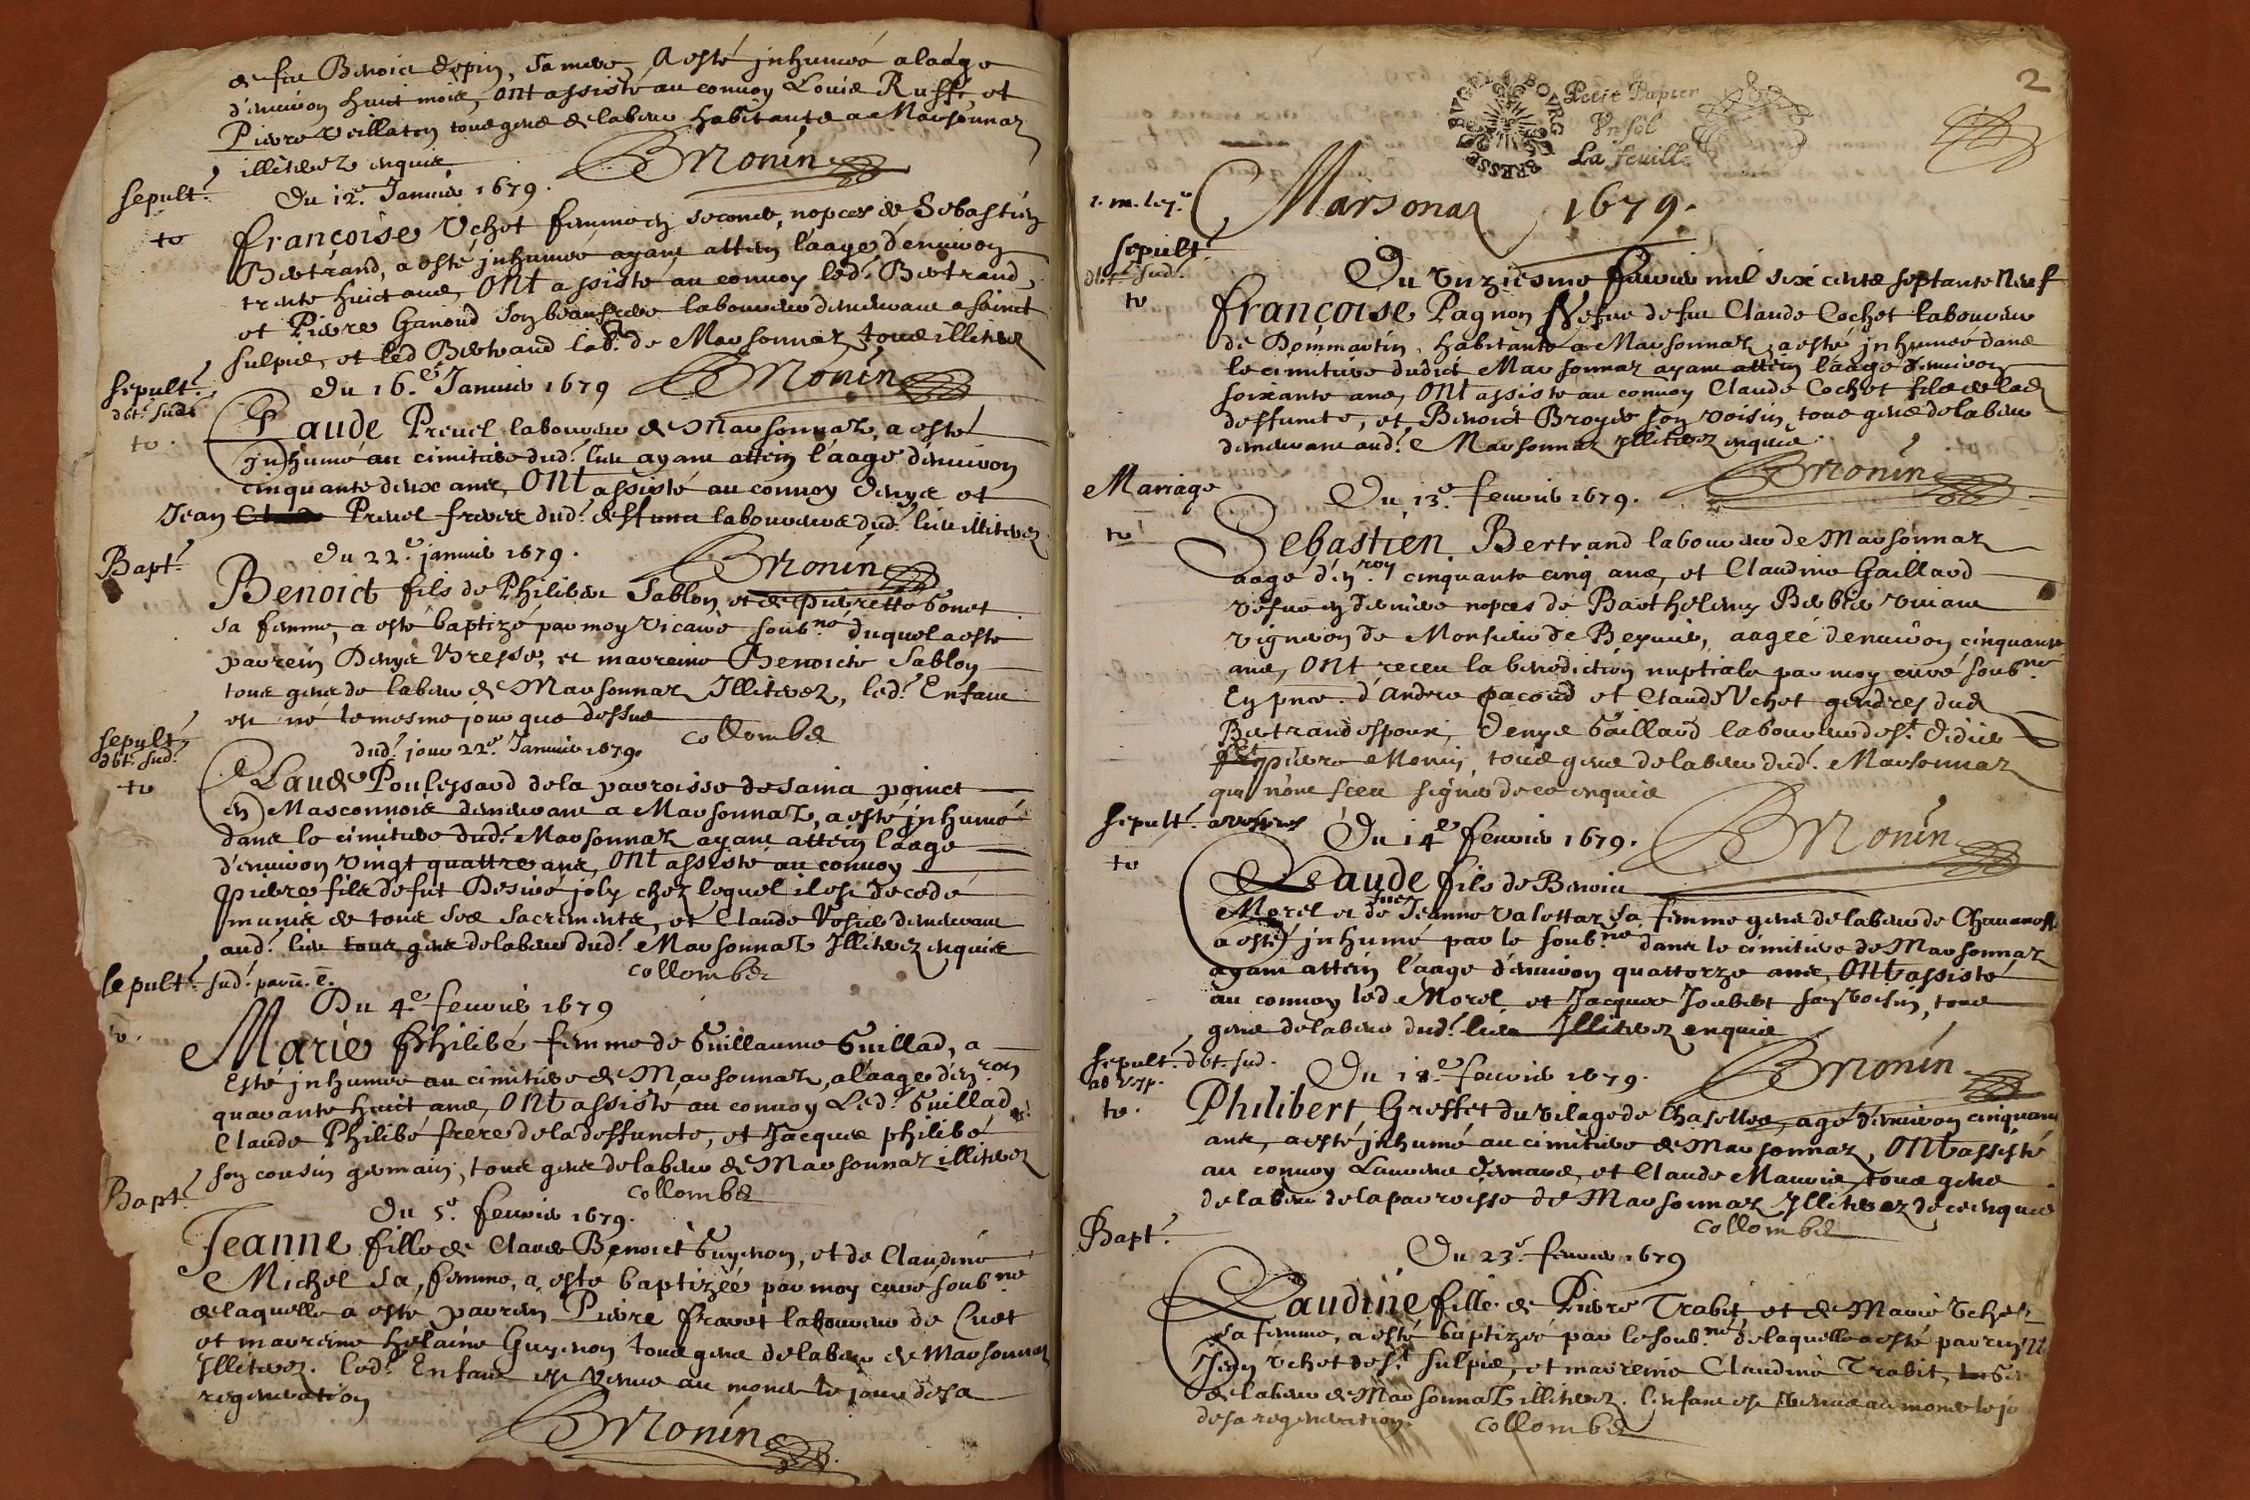 de feu Benoict Espin, sa mere, A esté jnhumée a laáge
d'enuiron huict mois, ont assisté au conuoy Louis Ruffé et
Pierre Veillaton tous gens de labeur habitants a Marsonnaz
illiterez enquis
BMonin
sepult.
Du 12.e Januier 1679.
to
françoise Vchet femme en seconde nopces de Sebastien
Bertrand, a esté jnhumée ayant attein l'aage d'enuiron
trente huict ans, ont assisté au conuoy led.t Bertrand,
et Pierre Ganoud son beaufrere laboureur demeurant a sainct
sulpis, et led Bertrand lab.r de Marsonnaz tous illiterez
BMonin
sepult.
dbt. sud.
to.
Du 16.e Januier 1679
Claude Preuel laboureur de Marsonnaz, a esté
jnhumé au cimitiere dud.t lieu ayant attein l'aage d'enuiron
cinquante deux ans, ont assisté au conuoy Denys et
Jean Preuel freres dud.t deffunct laboureurs dud.t lieu illiterez
BMonin
Bapt.
Du 22.e januier 1679.
Benoict fils de Philibert Sablon et de Pierrette Gonet
sa femme, a esté baptizé par moy vicaire soub.né duquel a esté
parrein Denys Bresse, et marreine Benoicte Sablon
tous gens de labeur de Marsonnaz Illiterez, led.t Enfant
est né le mesme jour que dessus
Collombet
sepult.
dbt. sud.
to
dud.t jour 22.e Januier 1679.
Claude Poulessard de la parroisse de sainct poinct
en Masconnois demeurant a Marsonnaz, a esté jnhumé
dans le cimitiere dud.t Marsonnaz ayant attein l'aage
d'enuiron vingt quattre ans, ont assisté au conuoy
pierre fils de fut Desiré joly chez lequel il est decedé
munis de tous ses sacrements, et Claude demeurant
aud.t lieu tous gens de labeur dud.t Marsonnaz Illiterez enquis
Collombet
sepult. sud.
Du 4.e feurier 1679
Marie Philibé femme de Guillaume Guillad, a
Esté jnhumée au cimitiere de Marsonnaz, a l'aage d'en.ron
quarante huict ans, ont assisté au conuoy Led.t Guillad
Claude Philibé frere de la deffuncte, et Jacques philibé
son cousin germain, tous gens de labeur de Marsonnaz illiterez
Collombet
Bapt.
Du 5.e feurier 1679.
Jeanne fille de Claude Benoict Guynon, et de Claudine
Michel sa femme, a esté baptizée par moy curé soub.né
de laquelle a esté parrein Pierre frauet laboureur de Cuet
et marreine helaine Guynon tous gens de labeur de Marsonnaz
Illiterez. led.t Enfant est venue au monde le jour de sa
regeneration
BMonin
2
BOURG BRESSE BUGEY
Petit Papier
Vn sol
La feuille
Marsonaz 1679.
sepult.
dbt. sud.
to
Du vnziesme feurier mil six cents septante neuf
françoise Pagnon Vefue de feu Claude Cochet laboureur
de Dommartin, habitante a Marsonnaz, a esté jnhumée dans
le cimitiere dudict Marsonnaz ayant attein l'aage d'enuiron
soixante ans, ont assisté au conuoy Claude Cochet fils de lad
deffuncte, et Benoict Broyer son voisin, tous gens de labeur
demeurant aud.t Marsonnaz Illiterez enquis.
BMonin
Mariage
to
Du 13.e feurier 1679.
Sebastien Bertrand laboureur de Marsonnaz
aagé d'en.ron cinquante cinq ans, et Claudine Gaillard
vefue en derniere nopces de Barthelemy viuant
vigneron de Monsieur de Beyuier, aagée d'enuiron cinquante
ans, ont receu la benediction nuptiale par moy curé soub.né
En pnce. d'Andre pacoud et Claude Vchet gendres dud
Bertrand espoux, Denys Gaillard laboureur de s.t Didier
et pierre Monin, tous gens de labeur dud.t Marsonnaz
qui n'ont sceu signer de ce enquis
BMonin
sepult.
to
Du 14.e feurier 1679.
Claude fils de Benoict
Morel et de Jeanne Valottaz sa femme gens de labeur de
a esté jnhumé par le soub.né dans le cimitiere de Marsonnaz
ayant attein l'aage d'enuiron quattorze ans, ont assisté
au conuoy led Morel et Jacques Joubert son voisin, tous
gens de labeur dud.t lieu Illiterez enquis
BMonin
sepult. dbt. sud.
to.
Du 18.e feurier 1679.
Philibert Greffet du vilage de Chaselles, agé d'enuiron cinquante
ans, a esté jnhumé au cimitiere de Marsonnaz, ont assisté
au conuoy Laurent et Claude Mauris, tous gens
de labeur de la parroisse de Marsonnaz Illiterez de ce enquis
Collombet
Bapt.
Du 23.e feurier 1679
Claudine fille de Pierre Trabit, et de Marie Vchet
sa femme, a esté baptizée par le soub.né de laquelle a esté parrein
Jean Vchet de s.t sulpis, et marreine Claudine Trabit,
de labeur de Marsonnaz illiterez. l'enfant est venue au monde le jo
de sa regeneration.
Collombet